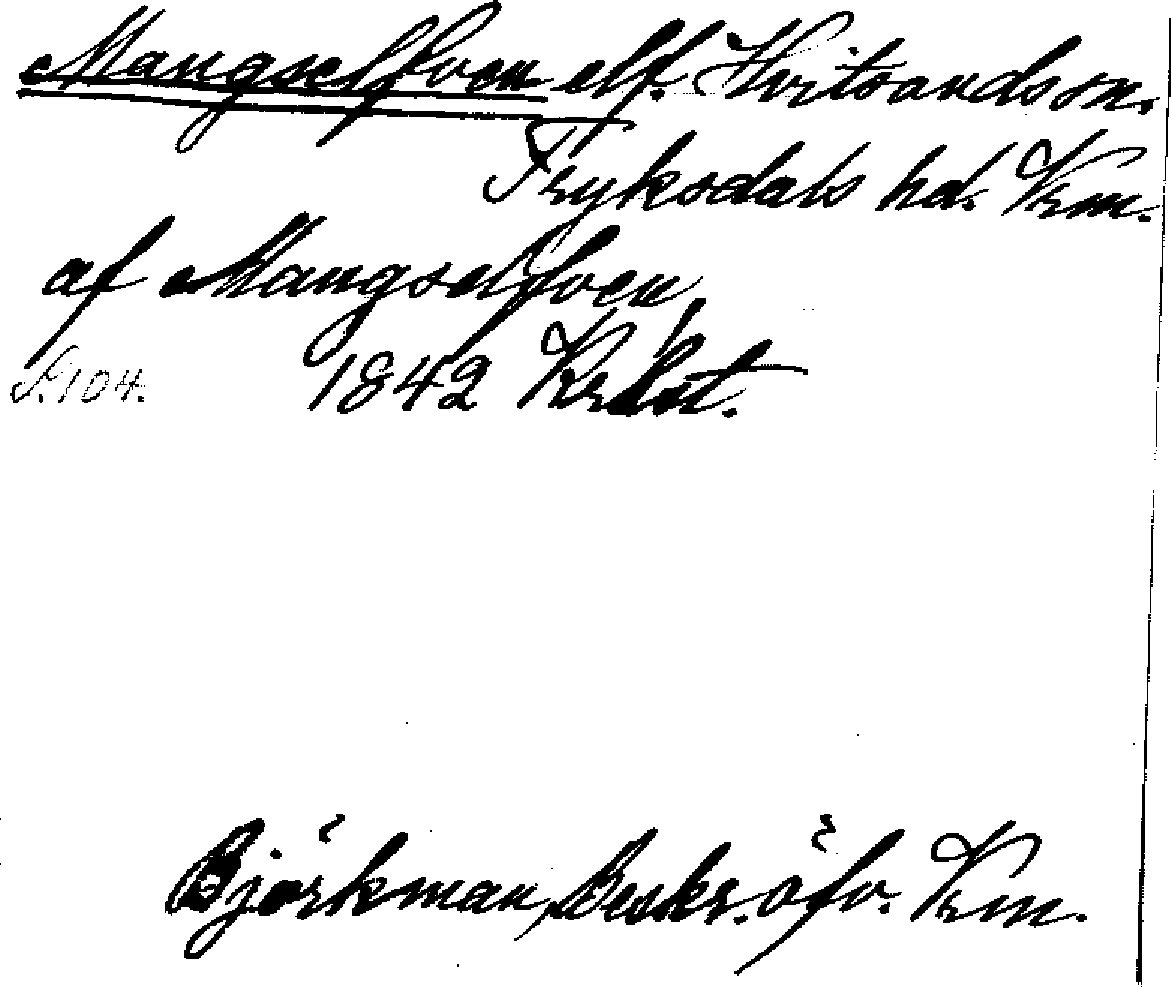 Mangselfven elf. Hvitsands sn.
Fryksdals hd. Vrm.
af Mangselfven
S. 104. 1842
Björkman, Beskr. öfv. Vrm.